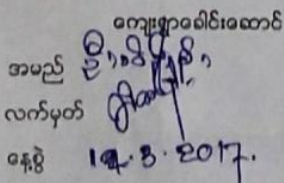 ကျေးရွာခေါင်းဆောင်
အမည်
လက်မှတ်
နေ့စွဲ 14.3.2017.